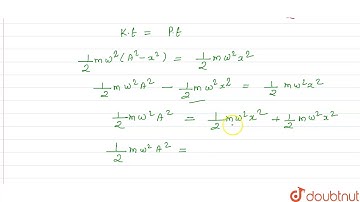 K.t = P.t
1/2 m ω² (A² - x²) = 1/2 m ω² x²
1/2 m ω² A² - 1/2 m ω² x² = 1/2 m ω² x²
1/2 m ω² A² = 1/2 m ω² x² + 1/2 m ω² x²
1/2 m ω² A² =
doubtnut